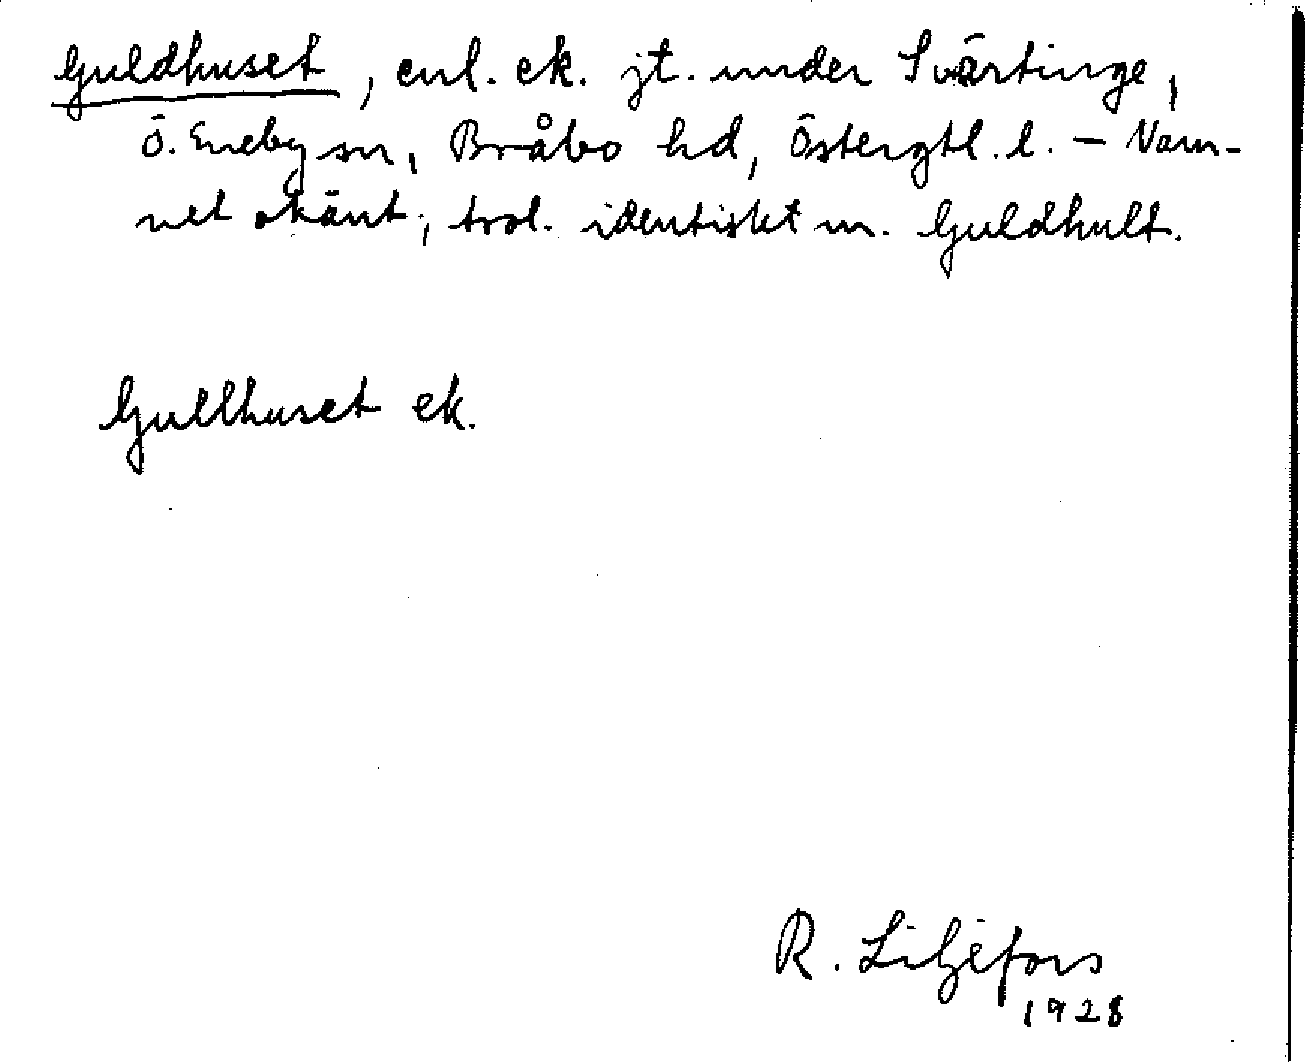 Guldhuset, enl. ek. jt. under Svärtinge,
Ö. Eneby sn, Bråbo hd, Östergtl. l. – Nam-
net okänt; trol. identiskt m. Guldhult.
Gullhuset ek.
R. Liljefors
1928